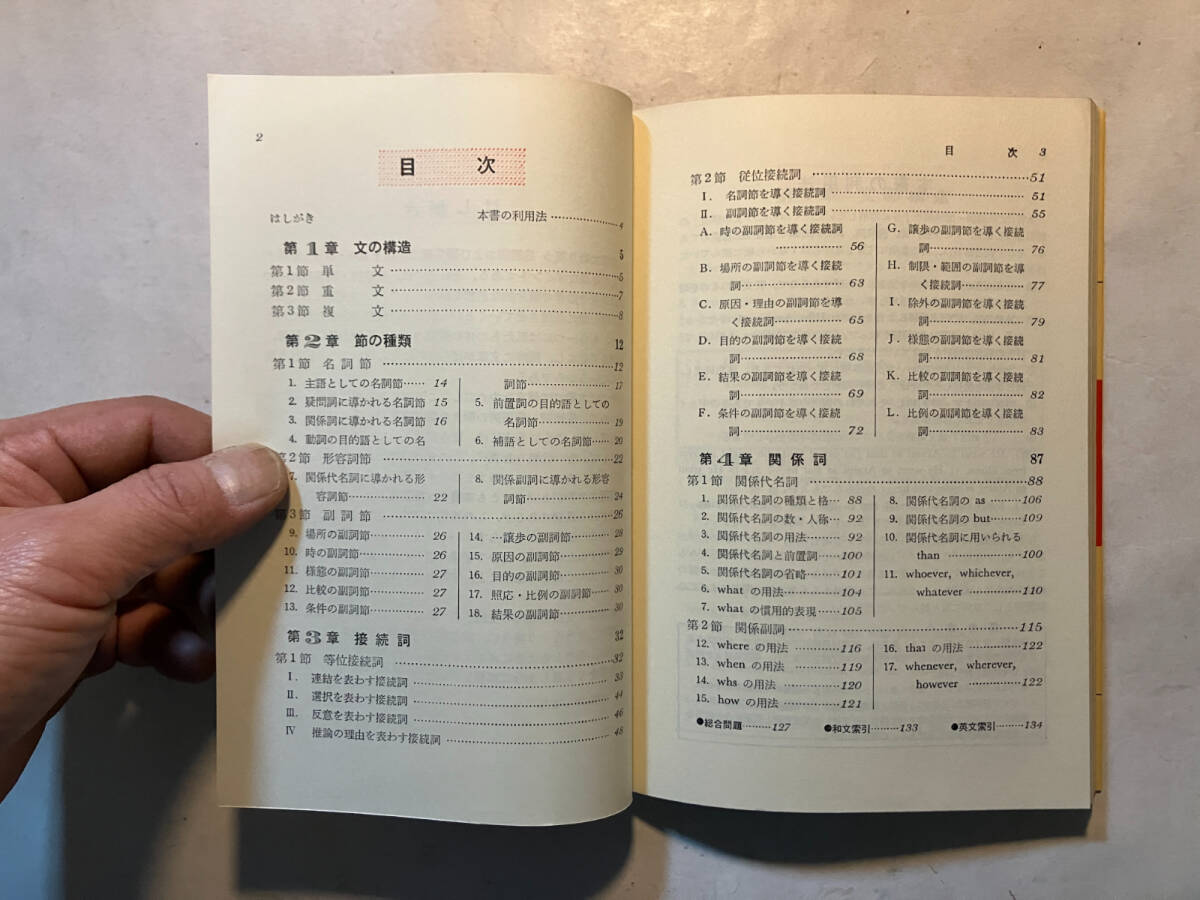 2
目 次
はしがき 本書の利用法 4
第1章 文の構造 5
第1節 単 文 5
第2節 重 文 7
第3節 複 文 8
第2章 節の種類 12
第1節 名詞節 12
1. 主語としての名詞節 14
2. 疑問詞に導かれる名詞節 15
3. 関係詞に導かれる名詞節 16
4. 動詞の目的語としての名
詞節 17
5. 前置詞の目的語としての
名詞節 19
6. 補語としての名詞節 20
第2節 形容詞節 22
7. 関係代名詞に導かれる形
容詞節 22
8. 関係副詞に導かれる形容
詞節 24
第3節 副詞節 26
9. 場所の副詞節 26
10. 時の副詞節 26
11. 様態の副詞節 27
12. 比較の副詞節 27
13. 条件の副詞節 27
14. …譲歩の副詞節 28
15. 原因の副詞節 29
16. 目的の副詞節 30
17. 照応・比例の副詞節 30
18. 結果の副詞節 30
第3章 接続詞 32
第1節 等位接続詞 32
I. 連結を表わす接続詞 33
II. 選択を表わす接続詞 44
III. 反意を表わす接続詞 46
IV 推論の理由を表わす接続詞 48
目 次 3
第2節 従位接続詞 51
I. 名詞節を導く接続詞 51
II. 副詞節を導く接続詞 55
A. 時の副詞節を導く接続詞
56
B. 場所の副詞節を導く接続
詞 63
C. 原因・理由の副詞節を導
く接続詞 65
D. 目的の副詞節を導く接続
詞 68
E. 結果の副詞節を導く接続
詞 69
F. 条件の副詞節を導く接続
詞 72
G. 譲歩の副詞節を導く接続
詞 76
H. 制限・範囲の副詞節を導
く接続詞 77
I. 除外の副詞節を導く接続
詞 79
J. 様態の副詞節を導く接続
詞 81
K. 比較の副詞節を導く接続
詞 82
L. 比例の副詞節を導く接続
詞 83
第4章 関係詞 87
第1節 関係代名詞 88
1. 関係代名詞の種類と格 88
2. 関係代名詞の数・人称 92
3. 関係代名詞の用法 92
4. 関係代名詞と前置詞 100
5. 関係代名詞の省略 101
6. what の用法 104
7. what の慣用的表現 105
8. 関係代名詞の as 106
9. 関係代名詞の but 109
10. 関係代名詞に用いられる
than 100
11. whoever, whichever,
whatever 110
第2節 関係副詞 115
12. where の用法 116
13. when の用法 119
14. whs の用法 120
15. how の用法 121
16. that の用法 122
17. whenever, wherever,
however 122
●総合問題 127 ●和文索引 133 ●英文索引 134